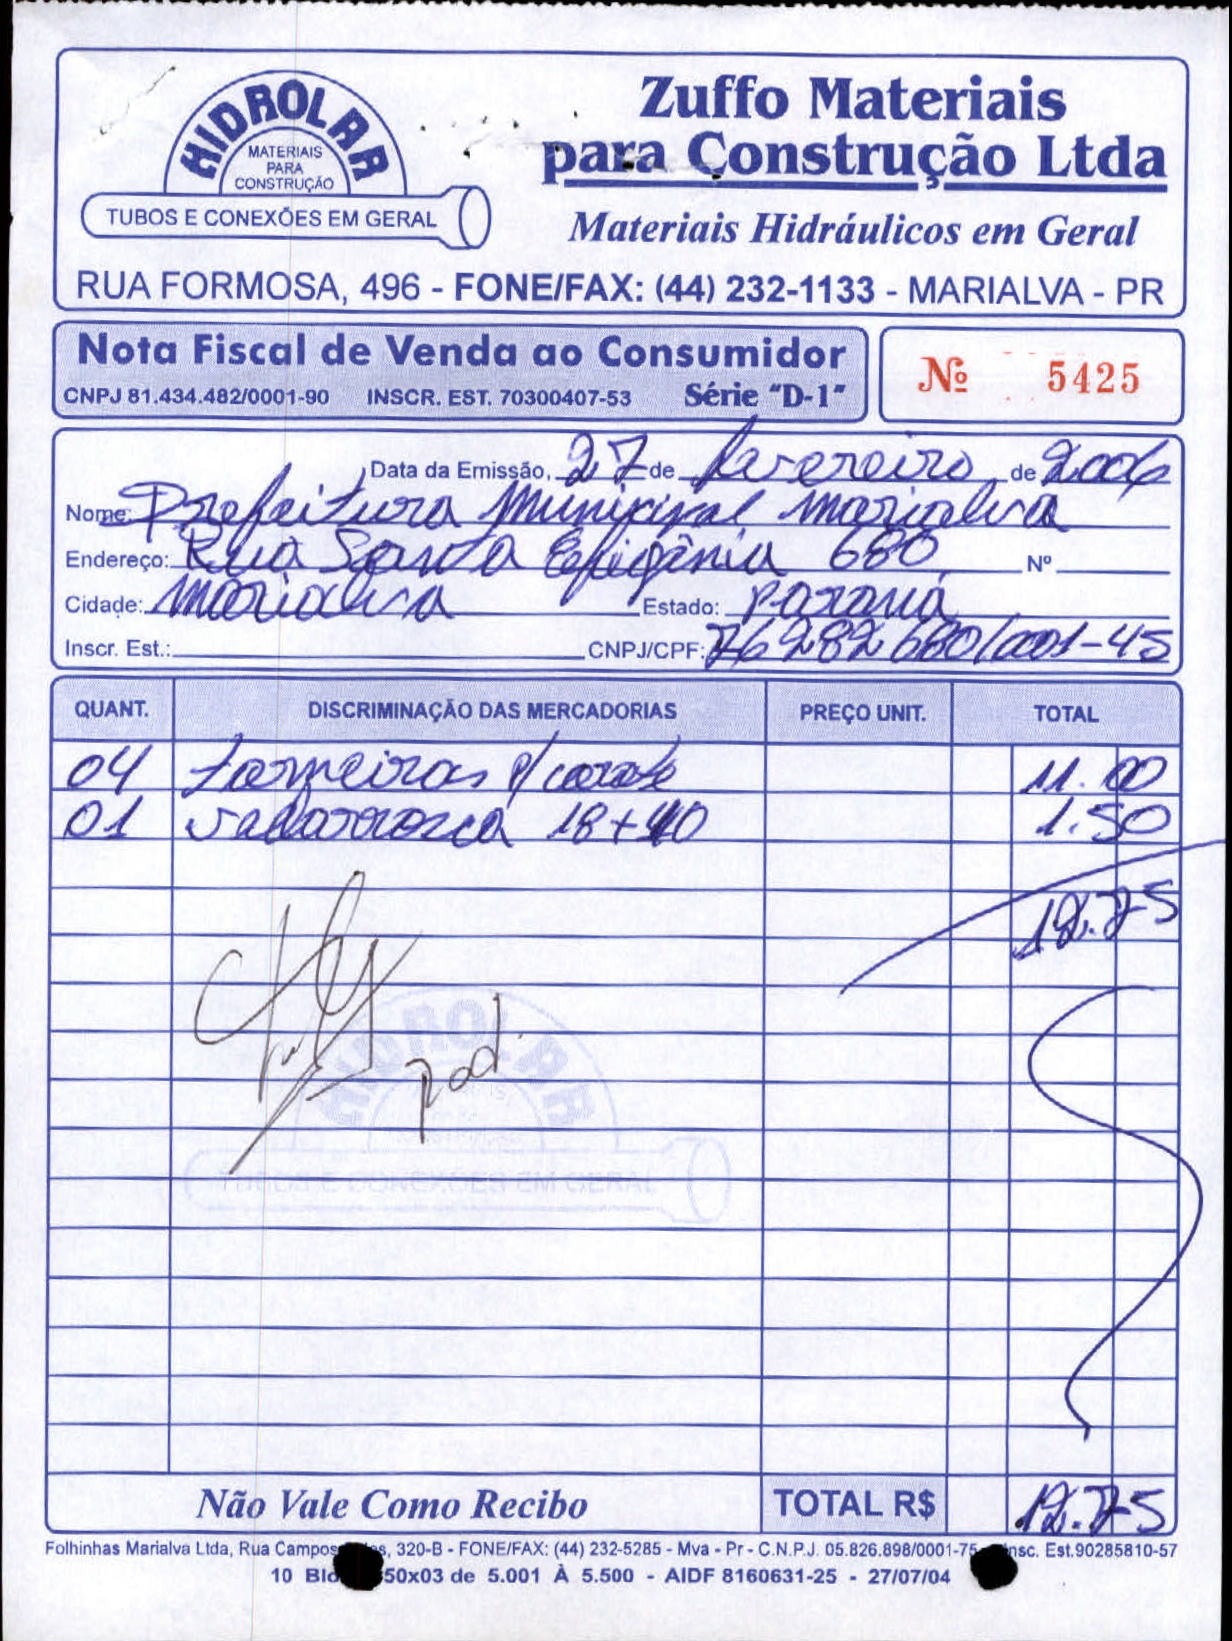 HIDROLAR
MATERIAIS
PARA
CONSTRUÇÃO
TUBOS E CONEXÕES EM GERAL
Zuffo Materiais
para Construção Ltda
Materiais Hidráulicos em Geral
RUA FORMOSA, 496 - FONE/FAX: (44) 232-1133 - MARIALVA - PR
Nota Fiscal de Venda ao Consumidor
CNPJ 81.434.482/0001-90 INSCR. EST. 70300407-53 Série "D-1"
Nº 5425
Data da Emissão, 27 de fevereiro de 2006
Nome: Prefeitura Municipal Marialva
Endereço: Rua Santa Efigênia 680 Nº
Cidade: Marialva Estado: Paraná
Inscr. Est.: CNPJ/CPF: 76282680/001-45
QUANT. DISCRIMINAÇÃO DAS MERCADORIAS PREÇO UNIT. TOTAL
04 Torneiras p/ 11.00
01 18+40 1.50
12.75
Rod.
HIDROLAR
TUBOS E CONEXÕES EM GERAL
Não Vale Como Recibo TOTAL R$ 12.75
Folhinhas Marialva Ltda, Rua 320-B - FONE/FAX: (44) 232-5285 - Mva - Pr - C.N.P.J. 05.826.898/0001-75 - Insc. Est.90285810-57
10 50x03 de 5.001 À 5.500 - AIDF 8160631-25 - 27/07/04